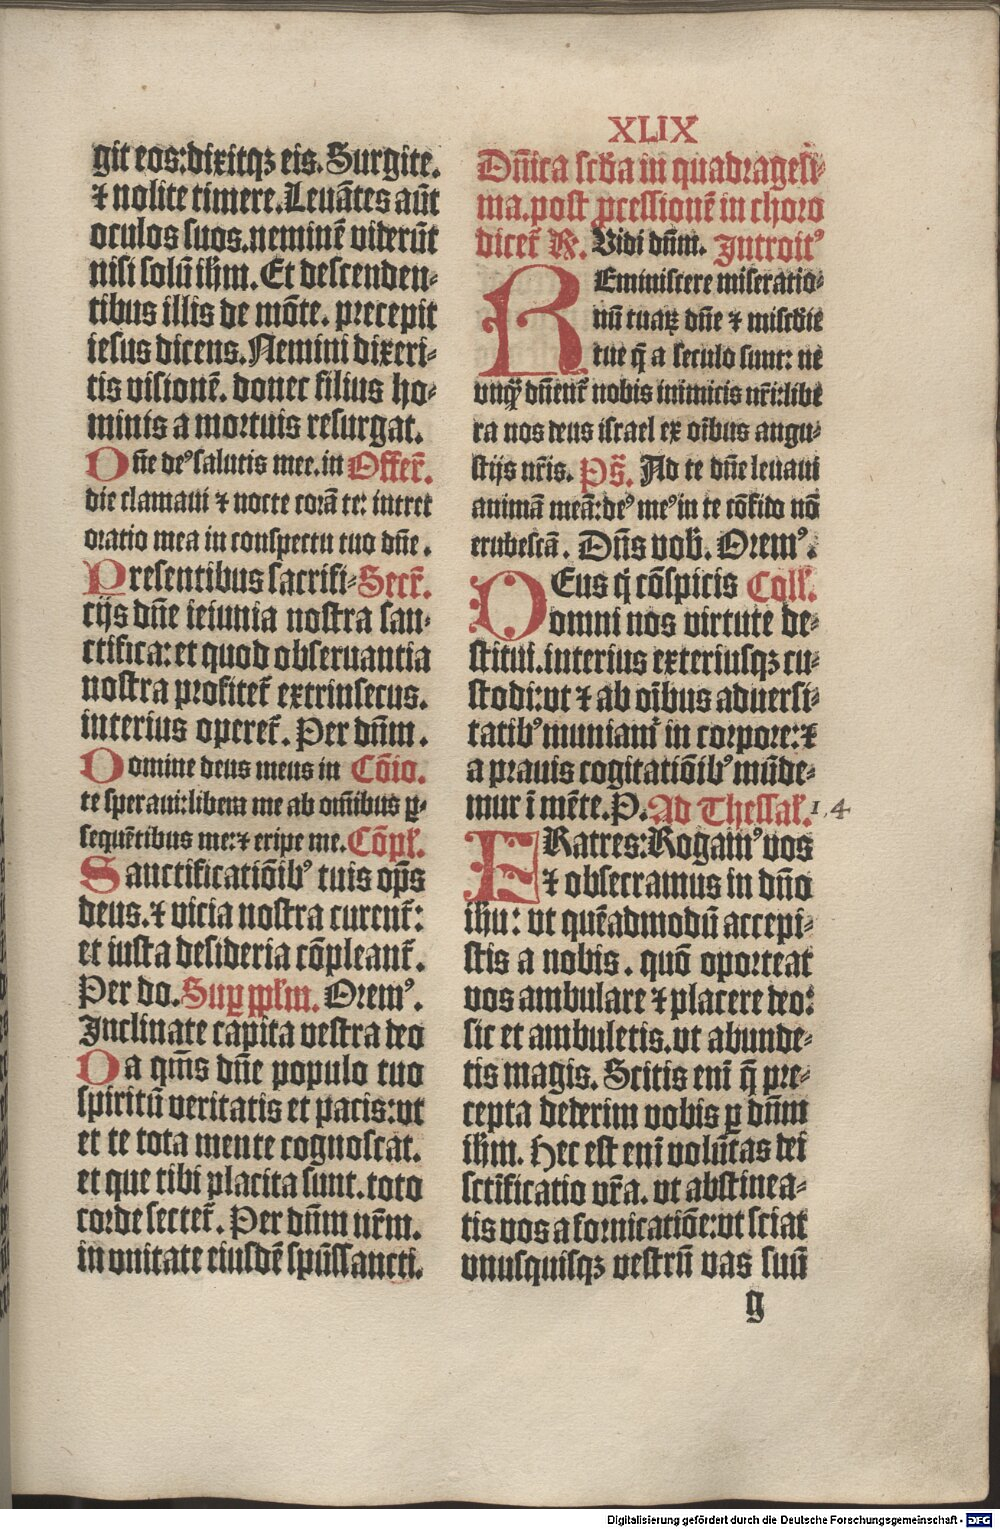 XLIX
git eos:dixitqꝫ eis. Surgite.
⁊ nolite timere. Leuātes aūt
oculos suos. neminē viderūt
nisi solū ihm̄. Et descenden-
tibus illis de mōte. precepit
iesus dicens. Nemini dixeri-
tis visionē. donec filius ho-
minis a mortuis resurgat.
Dn̄e deꝰ salutis mee. in Offer̄.
die clamaui ⁊ nocte corā te: intret
oratio mea in conspectu tuo dn̄e.
Presentibus sacrifi- Secr̄.
cijs dn̄e ieiunia nostra san-
ctifica: et quod obseruantia
nostra profitet̄ extrinsecus.
interius operet̄. Per dn̄m.
Domine deus meus in Cōio.
te speraui: libera me ab om̄ibus ꝑ-
sequētibus me: ⁊ eripe me. Cōpl̄.
Sanctificatiōibꝰ tuis op̄s
deus. ⁊ vicia nostra curent̄:
et iusta desideria cōpleant̄.
Per do. Suꝑ pplm̄. Oremꝰ.
Inclinate capita vestra deo
Da qm̄s dn̄e populo tuo
spiritū veritatis et pacis: vt
et te tota mente cognoscat.
et que tibi placita sunt. toto
corde sectet̄. Per dn̄m nr̄m.
in vnitate eiusdē spūssancti.
Dn̄ica scd̄a in quadragesi-
ma. post ꝓcessionē in choro
dicet̄ ℟. Vidi dn̄m. Introitꝰ
REminiscere miseratio-
nū tuaꝝ dn̄e ⁊ mis̄cdie
tue q̄ a seculo sunt: ne
vnq̄ꝫ dn̄ent̄ nobis inimicis nr̄i: libe
ra nos deus israel ex oībus angu-
stijs nr̄is. Ps̄. Ad te dn̄e leuaui
animā meā: deꝰ meꝰ in te cōfido nō
erubescā. Dn̄s vob̄. Oremꝰ.
DEus q̇ cōspicis Coll̄.
omni nos virtute de-
stitui. interius exteriusqꝫ cu-
stodi: vt ⁊ ab oībus aduersi-
tatibꝰ muniam̄ in corpore: ⁊
a prauis cogitatiōibꝰ mūde-
mur ī mēte. P. Ad Thessal̄. 1, 4
FRatres: Rogamꝰ vos
⁊ obsecramus in dn̄o
ihū: vt quēadmodū accepi-
stis a nobis. quō oporteat
vos ambulare ⁊ placere deo:
sic et ambuletis. vt abunde-
tis magis. Scitis enī q̄ pre-
cepta dederim vobis ꝑ dn̄m
ihm̄. Hec est enī volūtas dei
sctificatio vr̄a. vt abstinea-
tis vos a fornicatiōe: vt sciat
vnusquisqꝫ vestrū vas suū
g
Digitalisierung gefördert durch die Deutsche Forschungsgemeinschaft - DFG